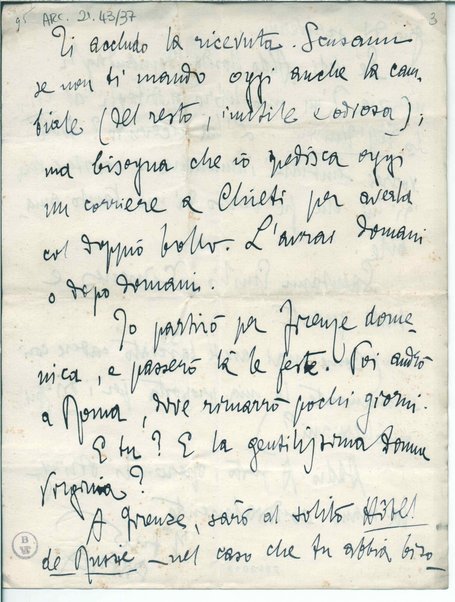 95 ARC. 21. 43/37 3
Ti accludo la ricevuta. Scusami
se non ti mando oggi anche la cam-
biale (del resto, inutile e odiosa);
ma bisogna che io spedisca oggi
un corriere a Chieti per averla
col doppio bollo. L'avrai domani
o dopo domani.
Io partirò per Firenze dome-
nica, e passerò là le feste. Poi andrò
a Roma, dove rimarrò pochi giorni.
E tu? E la gentilissima donna
Virginia?
A Firenze, sarò al solito Hôtel
de Russie – nel caso che tu abbia biso